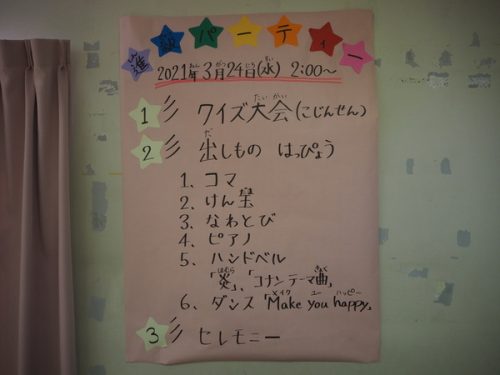 進級パーティー
2021年3月24日(水) 2:00～
1 クイズ大会(こじんせん)
2 出しもの はっぴょう
1、コマ
2、けん玉
3、なわとび
4、ピアノ
5、ハンドベル
「炎」、「コナンテーマ曲」
6、ダンス「Make you happy」
3 セレモニー